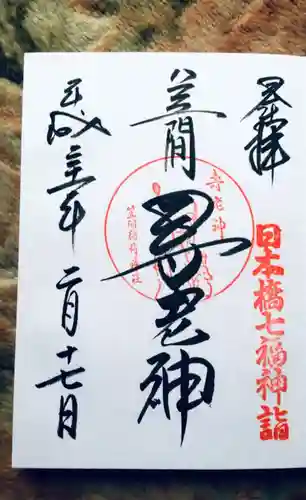 奉拝
日本橋七福神詣
笠間
寿老神
寿老神
笠間稲荷神社
平成二十一年二月十七日